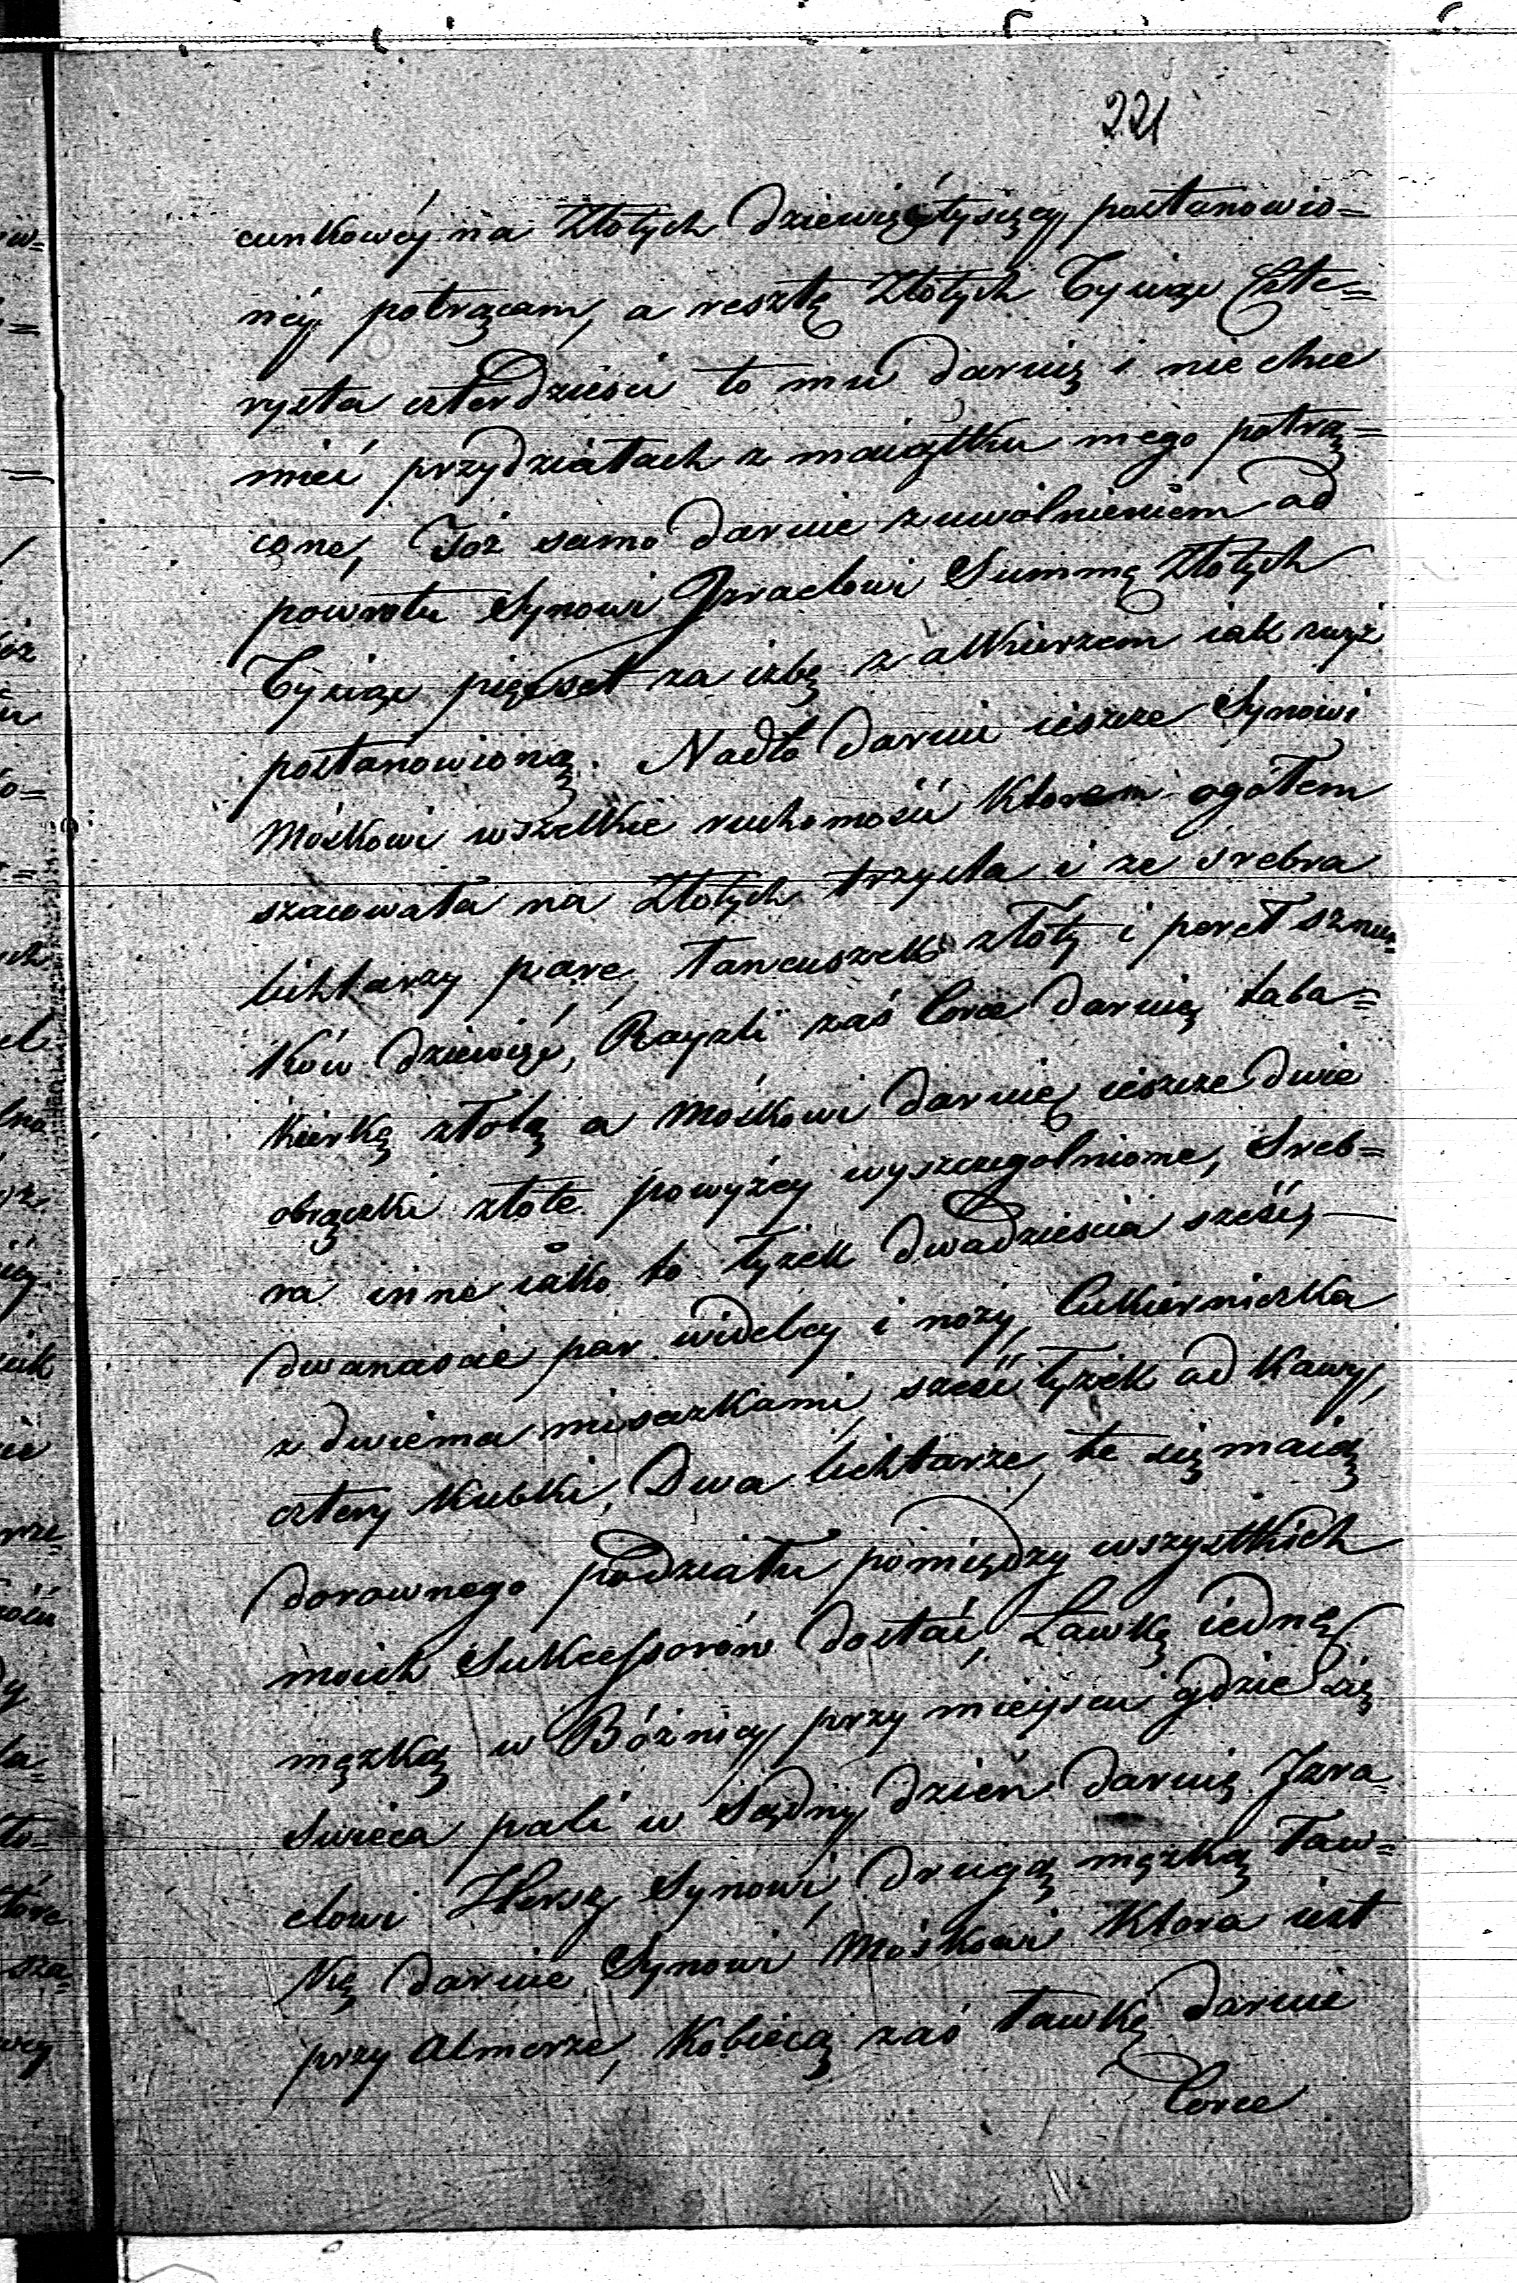 221
cunkowéy na Złotych dziewięćtysięcy postanowio=
néy potrącam, a resztę Złotych Tysiąc Czte=
rysta czterdzieści to mu daruię i nie chce
mieć przydziałach z maiątku mego potrą=
cone, Tóż samo daruie z uwolnieniem od
powrotu Synowi Izraelowi Summę Złotych
Tysiąc pięćset za izbę z alkierzem iak wyż
postanowioną. Nadto daruie ieszcze Synowi
Moskowi wszelkie ruchomości którem ogółem
szacowała na Złotych trzysta i ze srebra
lichtarzy parę, łancuszek złoty i pereł sznur=
ków dziewięć, Rayzli zaś Corce daruię taba=
kierkę złotą a Moskowi daruię ieszcze dwie
obrączki złote powyżéy wyszczegolnione, Sreb=
ra inne iako to łyżek dwadzieścia sześć,
dwanaście par widelcy i noży, Cukierniczka
z dwiema miseczkami, sześć łyżek od kawy,
cztery kubki, Dwa lichtarze, te się maią
dorownego podziału pomiędzy wszystkich
moich Sukcessorów dostać, Ławkę iedną
męzką w Bóżnicy przy mieyscu gdzie się
świeca pali w Sądny dzień daruię Izra=
elowi Herszy Synowi, drugą męzką ław=
kę daruie Synowi Moskowi która iest
przy Almerze, Kobiecą zaś ławkę daruie
Corce